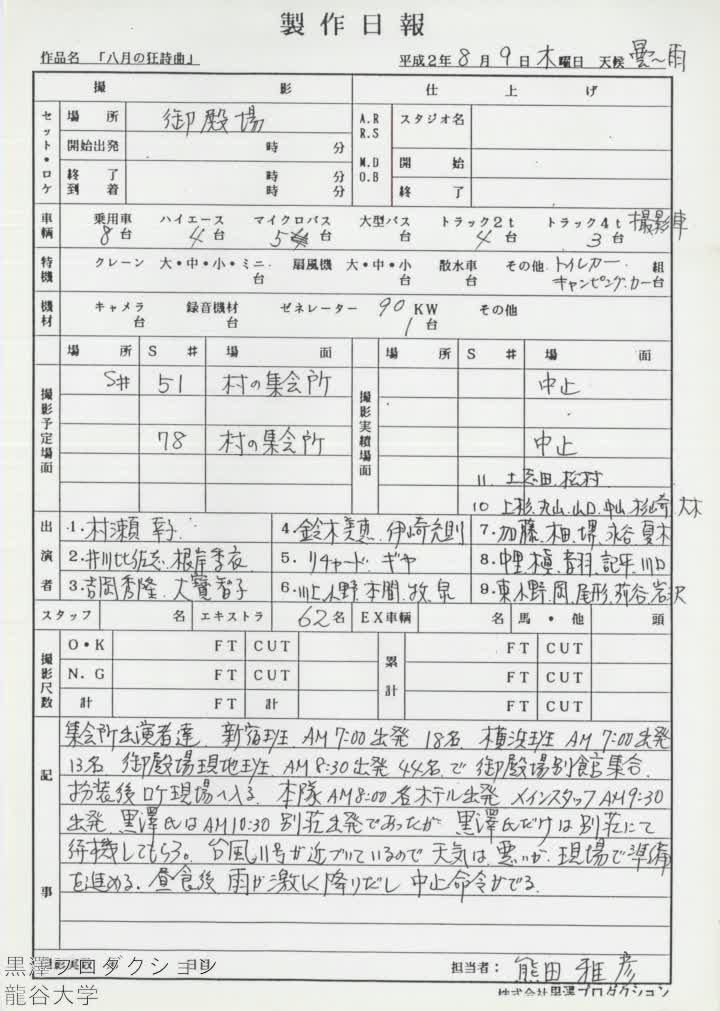 製作日報
作品名 「八月の狂詩曲」 平成2年8月9日木曜日 天候 曇〜雨
撮影 仕上げ
セット・ロケ 場所 御殿場 A.R R.S スタジオ名
開始出発 時 分
M.D O.B 開始
終了到着 時 分
時 分 終了
車輌 乗用車 8台 ハイエース 4台 マイクロバス 5台 大型バス 台 トラック2t 4台 トラック4t 3台 撮影車
特機 クレーン 大・中・小・ミニ 台 扇風機 大・中・小 台 散水車 台 その他 トイレカー 組
キャンピングカー台
機材 キャメラ 台 録音機材 台 ゼネレーター 90KW 1台 その他
場所 S# 場面 場所 S# 場面
撮影予定場面 撮影実績場面
S# 51 村の集会所 中止
78 村の集会所 中止
11. 土志田、松村
10 上杉、丸山、山口、中山、杉崎、大木
出演者
1. 村瀬幸子 4. 鈴木美恵、伊崎充則 7. 加藤、木田、堺、永谷、夏木
2. 井川比佐志、根岸季衣 5. リチャード ギヤ 8. 中里、槇、音羽、記平、川口
3. 吉岡秀隆、大寶智子 6. 川上、小野、本間、牧、泉 9. 東、小野、岡、尾形、苅谷、岩沢
スタッフ 名 エキストラ 62名 EX車輌 名 馬・他 頭
撮影尺数 O・K FT CUT 累計 FT CUT
N.G FT CUT FT CUT
計 FT 計 FT CUT
記事
集会所出演者達、新宿班 AM7:00出発 18名 横浜班 AM7:00出発
13名 御殿場現地班 AM8:30出発 44名で御殿場別館集合、
扮装後ロケ現場へ入る。本隊AM8:00各ホテル出発 メインスタッフAM9:30
出発 黒澤氏はAM10:30別荘出発であったが 黒澤氏だけは別荘にて
待機してもらう。台風11号が近づいているので天気は、悪いが、現場で準備
を進める。昼食後 雨が激しく降りだし 中止命令がでる。
担当者： 熊田雅彦
株式会社黒澤プロダクション
黒澤プロダクション
龍谷大学